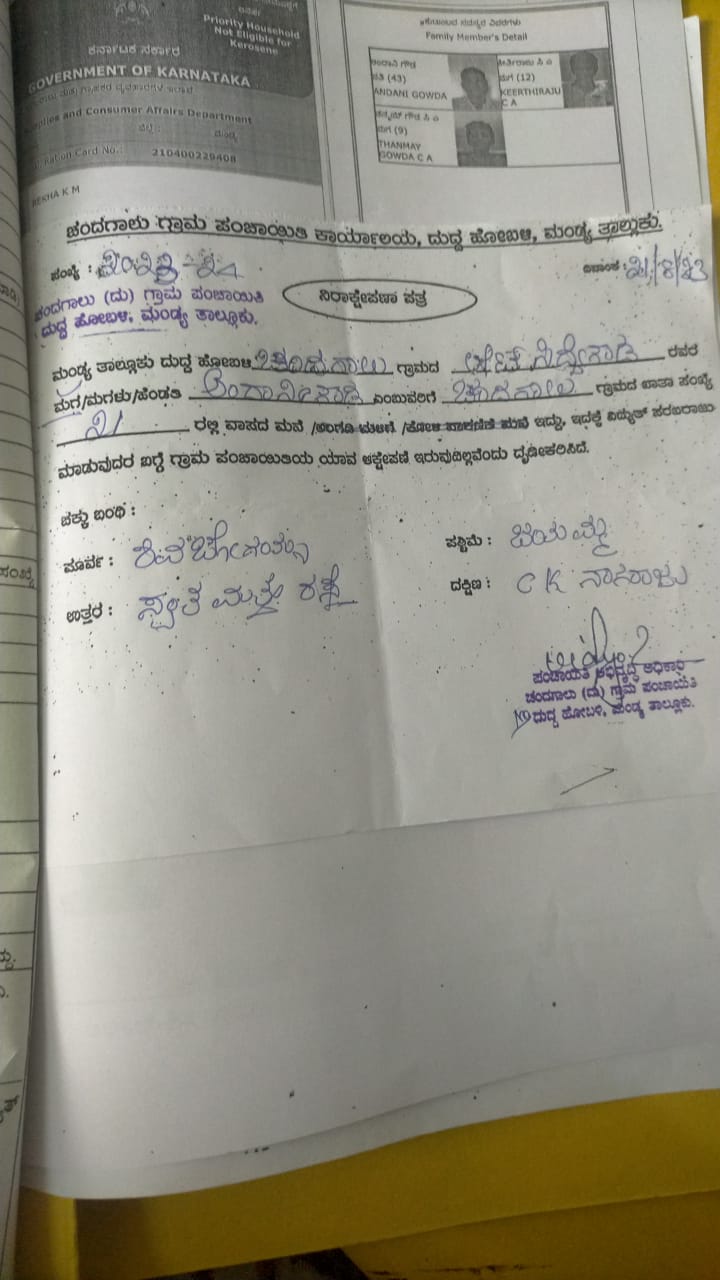 Priority Household
Not Eligible for
Kerosene
ಕರ್ನಾಟಕ ಸರ್ಕಾರ
GOVERNMENT OF KARNATAKA
and Consumer Affairs Department
ಮಂಡ್ಯ
Ration Card No.: 210400229408
REKHA K M
Family Member's Detail
(43)
ANDANI GOWDA
(12)
KEERTHIRAJU
C A
(9)
THANMAY
GOWDA C A
ಚಂದಗಾಲು ಗ್ರಾಮ ಪಂಚಾಯಿತಿ ಕಾರ್ಯಾಲಯ, ದುದ್ದ ಹೋಬಳಿ, ಮಂಡ್ಯ ತಾಲ್ಲೂಕು.
ಸಂಖ್ಯೆ :
ದಿನಾಂಕ : 21/8/23
ಚಂದಗಾಲು (ದು) ಗ್ರಾಮ ಪಂಚಾಯಿತಿ
ದುದ್ದ ಹೋಬಳಿ, ಮಂಡ್ಯ ತಾಲ್ಲೂಕು.
ನಿರಾಕ್ಷೇಪಣಾ ಪತ್ರ
ಮಂಡ್ಯ ತಾಲ್ಲೂಕು ದುದ್ದ ಹೋಬಳಿ ಚಂದಗಾಲು ಗ್ರಾಮದ ಸಿದ್ದೇಗೌಡ ರವರ
ಮಗ/ಮಗಳು/ಹೆಂಡತಿ ಅಂದಾನೀಗೌಡ ಎಂಬುವರಿಗೆ ಚಂದಗಾಲು ಗ್ರಾಮದ ಖಾತಾ ಸಂಖ್ಯೆ
21 ರಲ್ಲಿ ವಾಸದ ಮನೆ /ಅಂಗಡಿ ಮಳಿಗೆ /ಕೋಳಿ ಸಾಕಾಣಿಕೆ ಮನೆ ಇದ್ದು, ಇದಕ್ಕೆ ವಿದ್ಯುತ್ ಸರಬರಾಜು
ಮಾಡುವುದರ ಬಗ್ಗೆ ಗ್ರಾಮ ಪಂಚಾಯಿತಿಯ ಯಾವ ಆಕ್ಷೇಪಣೆ ಇರುವುದಿಲ್ಲವೆಂದು ದೃಢೀಕರಿಸಿದೆ.
ಚಕ್ಕು ಬಂಧಿ :
ಪೂರ್ವ :
ಪಶ್ಚಿಮ : ಜಯಮ್ಮ
ಉತ್ತರ : ಸ್ವಂತ ಮತ್ತು ರಸ್ತೆ
ದಕ್ಷಿಣ : C K ನಾಗರಾಜು
ಪಂಚಾಯಿತಿ ಅಭಿವೃದ್ಧಿ ಅಧಿಕಾರಿ
ಚಂದಗಾಲು (ದು) ಗ್ರಾಮ ಪಂಚಾಯಿತಿ
ದುದ್ದ ಹೋಬಳಿ, ಮಂಡ್ಯ ತಾಲ್ಲೂಕು.